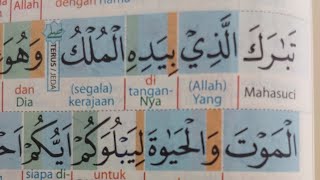 Allah dengan nama
تَبٰرَكَ الَّذِيْ بِيَدِهِ الْمُلْكُ وَهُوَ
TERUS JEDA
Mahasuci (Allah) Yang di tangan-Nya (segala) kerajaan dan Dia
الْمَوْتَ وَالْحَيٰوةَ لِيَبْلُوَكُمْ اَيُّكُمْ
untuk siapa di-